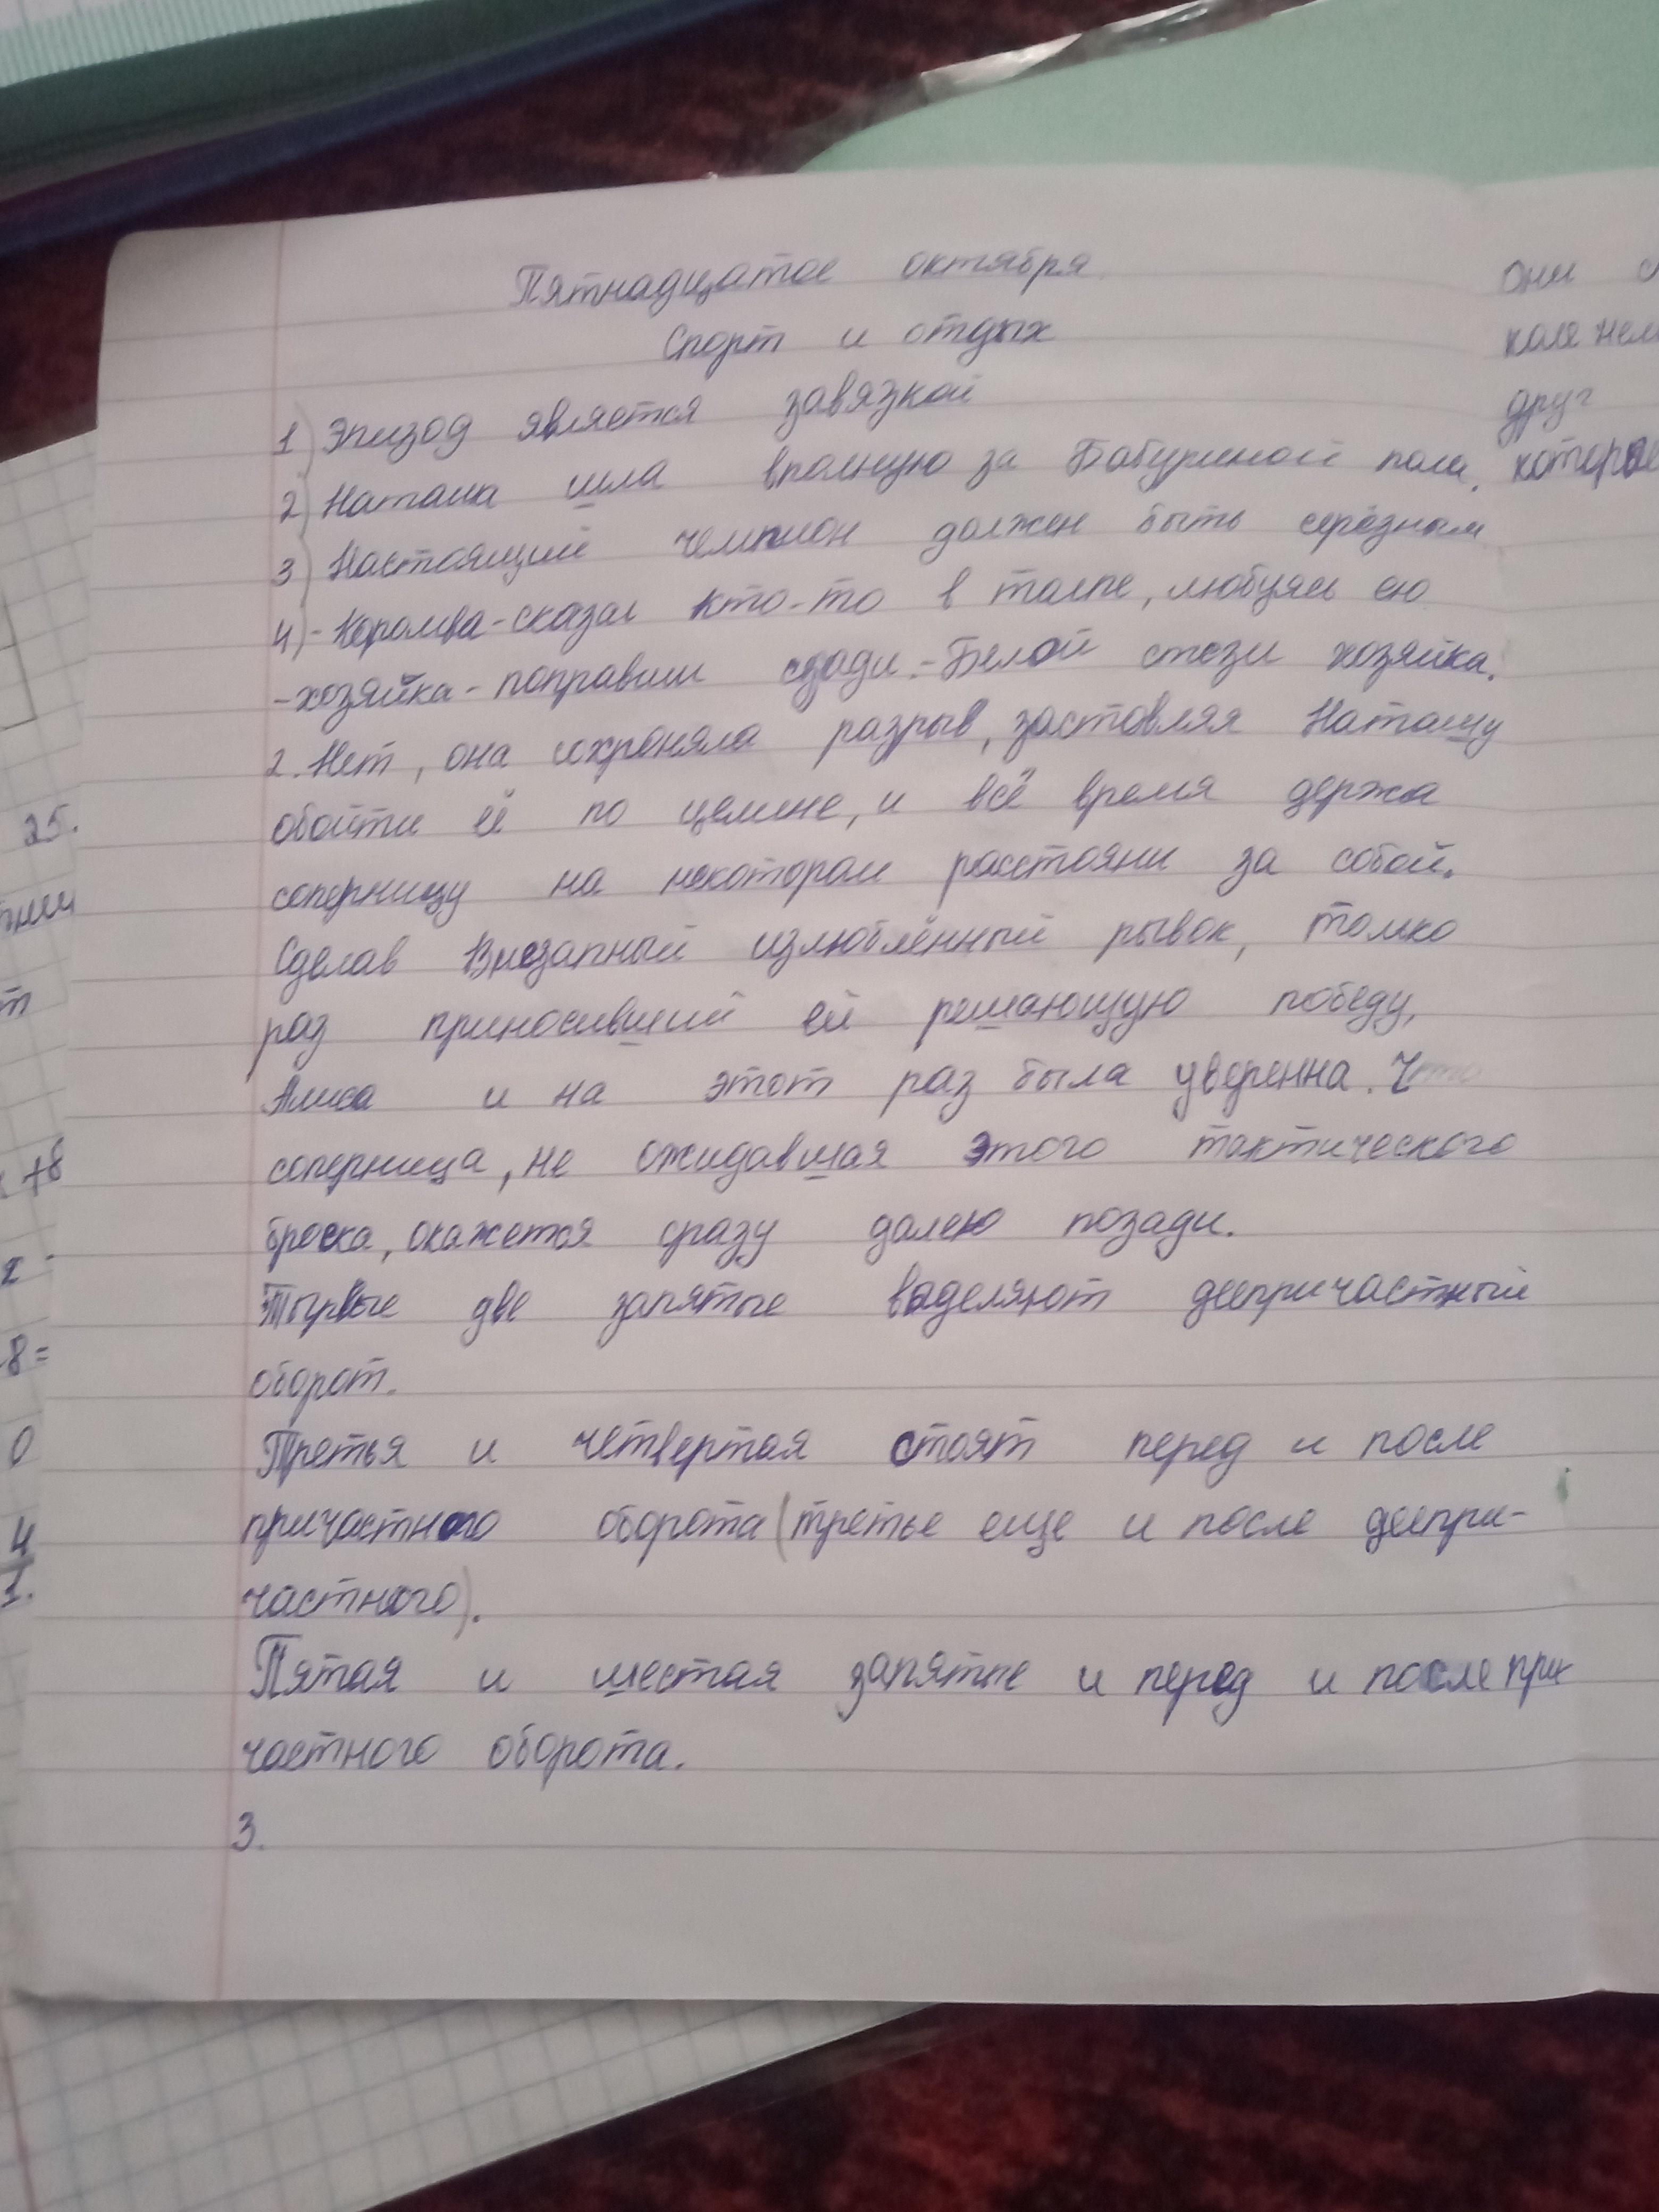 Пятнадцатое октября
Спорт и отдых
1) Эпизод является завязкой
2) Наташа шла вполную за Бабуриной пола.
3) Настоящий чемпион должен быть серёзным
4) - Королева - сказал кто-то в толпе, любуясь ею
- хозяйка - поправили сзади. - Белой стези хозяйка.
2. Нет, она сохроняла разрыв, застовляя Наташу
обойти её по целине, и всё время держа
соперницу на некотором расстояни за собой.
Сделав внезапный излюблённый рывок, толко
раз приносивший ей решающую победу,
Алиса и на этот раз была уверенна. Что
соперница, не ожидавшая этого тактического
броска, окажется сразу далеко позади.
Первые две запятые выделяют деепричастный
оборот.
Третья и четвертая стоят перед и после
причастного оборота (третье еще и после деепри-
частного).
Пятая и шестая запятые и перед и после при
частного оборота.
3.
они
друг
которые
25.
+8
8=
0
4
1.